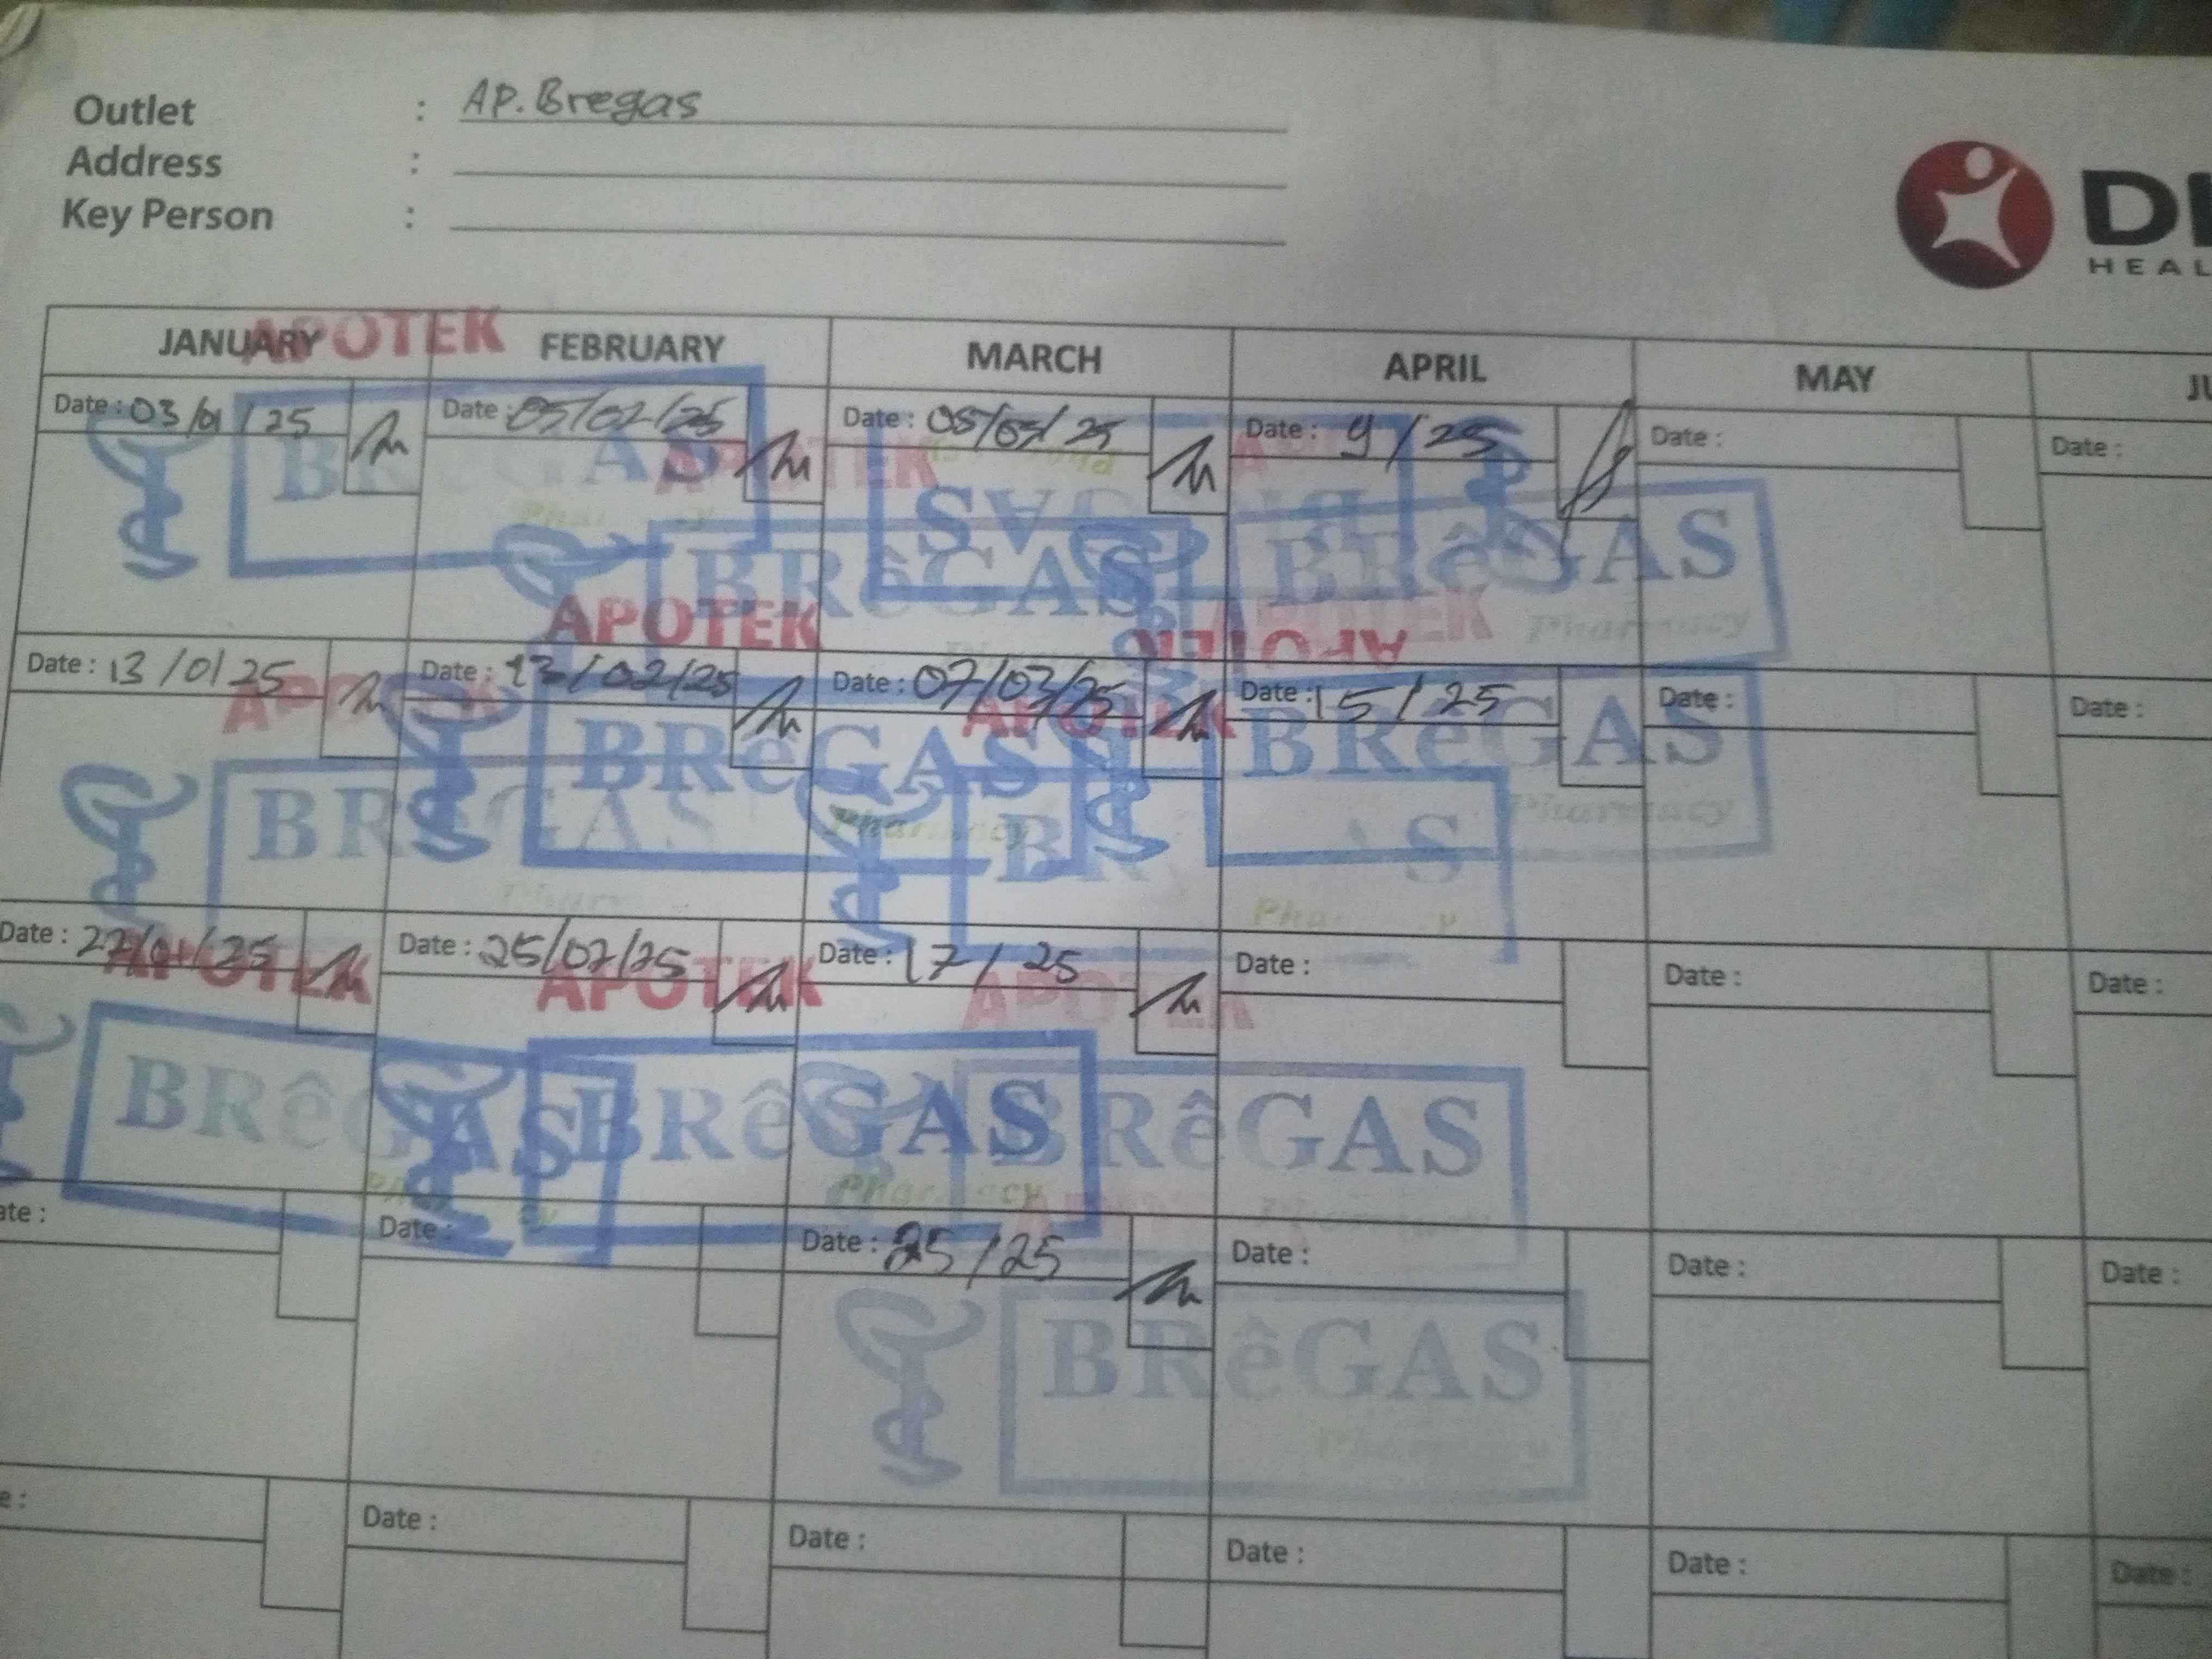 Outlet : AP. Bregas
Address :
Key Person :
DI
HEAL
JANUARY FEBRUARY MARCH APRIL MAY JU
APOTEK
Date : 03/01/25 Date : 05/02/25 Date : 05/03/25 Date : 9/25 Date : Date :
BRêGAS
APOTEK
BRêGAS
BRêGAS
Pharmacy
APOTEK APOTEK APOTEK
Date : 13/01/25 Date : 13/02/25 Date : 07/03/25 Date : 15/25 Date : Date :
APOTEK APOTEK
BRêGAS BRêGAS BRêGAS
Pharmacy Pharmacy
Date : 22/01/25 Date : 25/02/25 Date : 17/25 Date : Date : Date :
APOTEK APOTEK APOTEK
BRêGAS BRêGAS BRêGAS
Pharmacy
ate : Date : Date : 25/25 Date : Date : Date :
BRêGAS
e : Date : Date : Date : Date : Date :